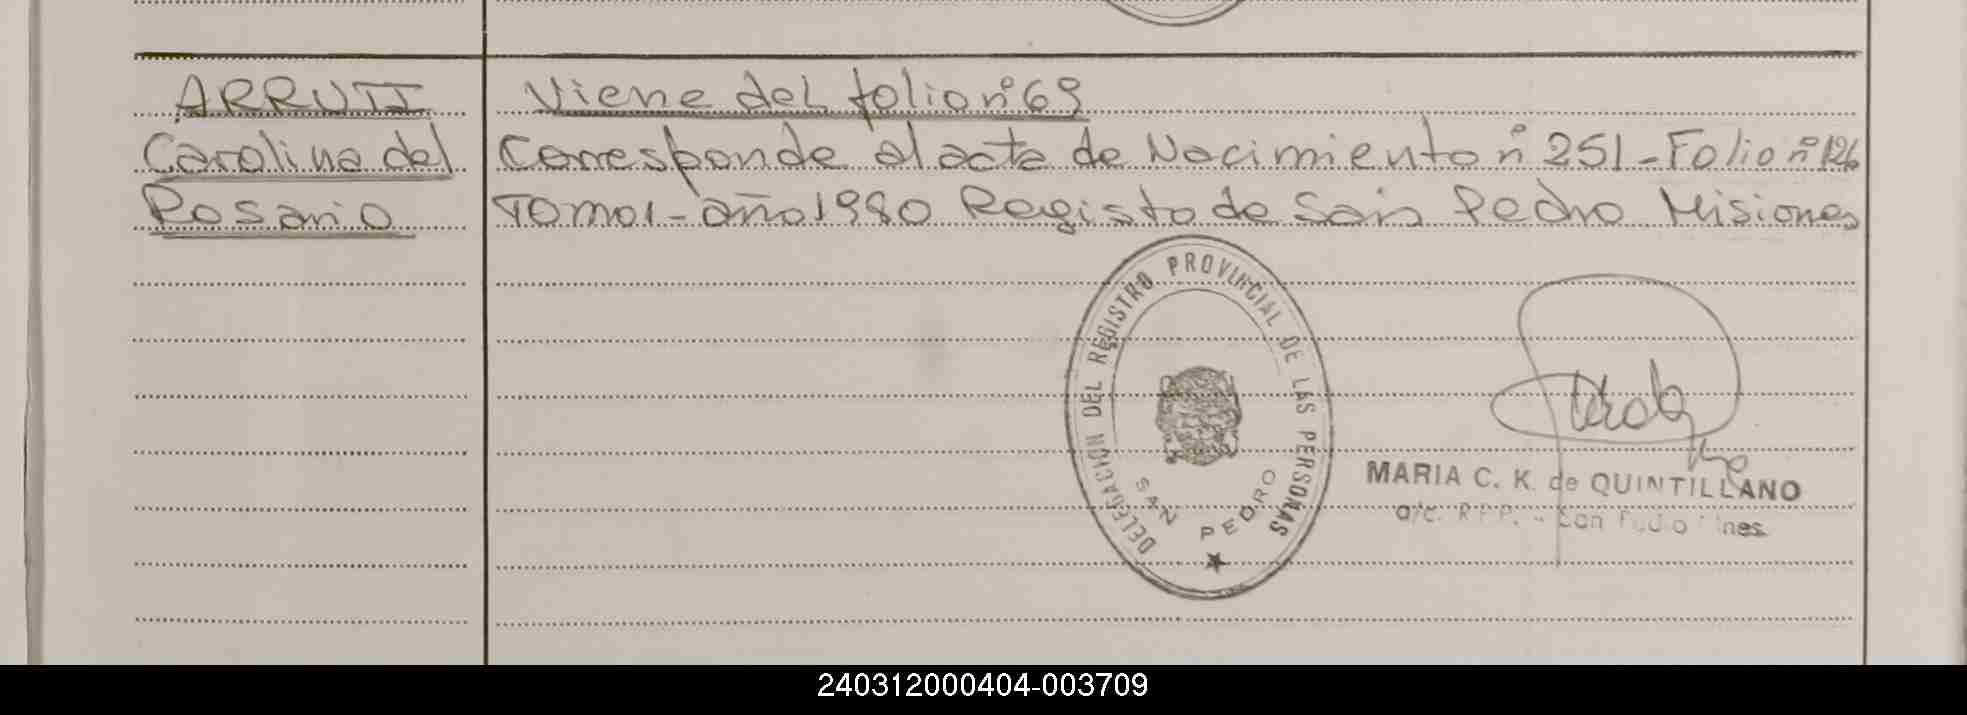 ARRUTI
Carolina del
Rosario
Viene del folio nº 69
Corresponde al acta de Nacimiento nº 251 - Folio nº 126
Tomo 1 - año 1980 Registo de San Pedro Misiones
DELEGACION DEL REGISTRO PROVINCIAL DE LAS PERSONAS
SAN PEDRO
MARIA C. K. de QUINTILLANO
a/c. R.P.P. - San Pedro Mnes.
240312000404-003709